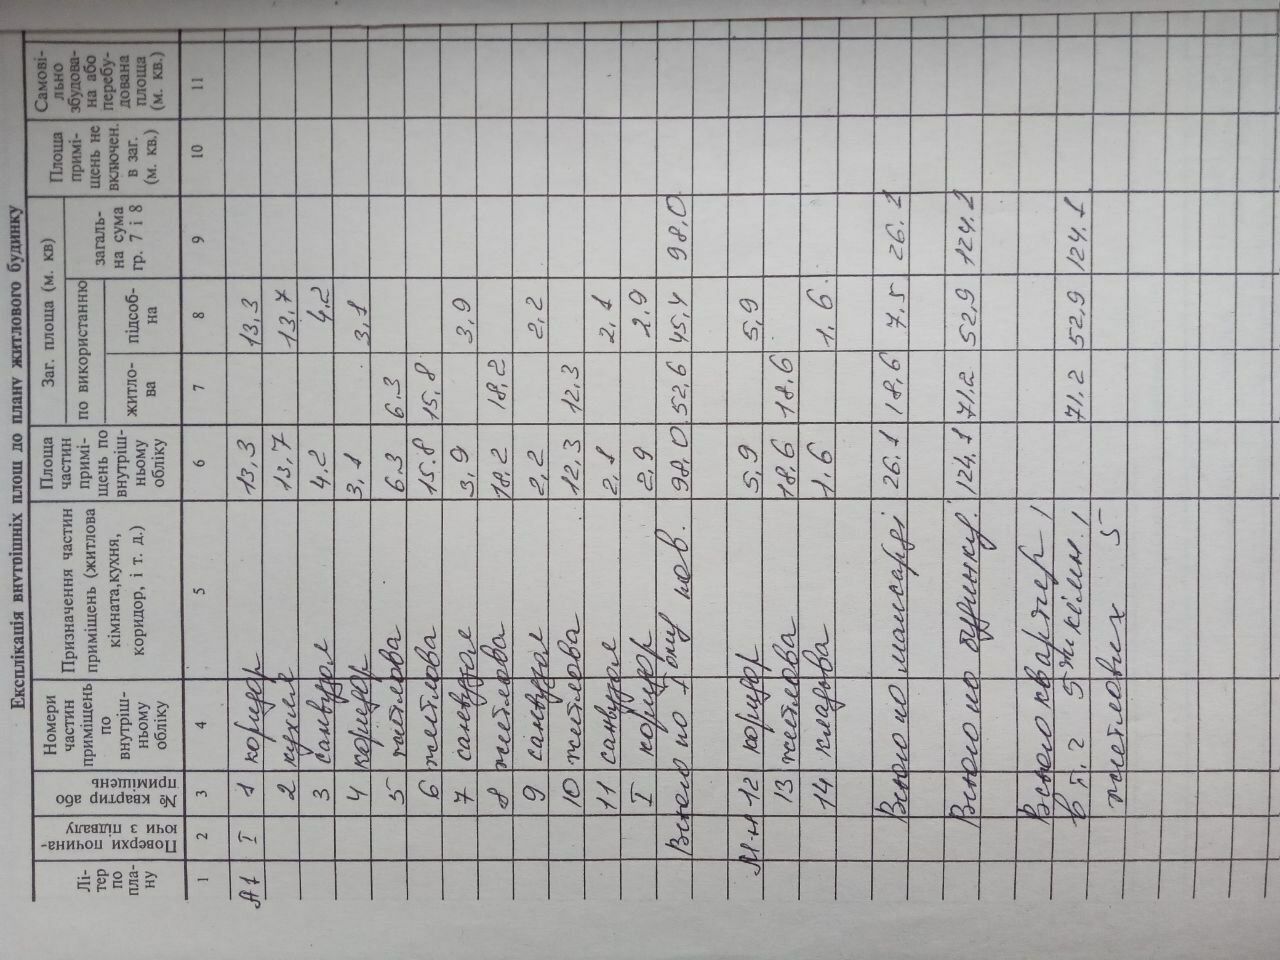 Експлікація внутрішніх площ до плану житлового будинку
Лі-
тер
по
пла-
ну
Поверхи почина-
ючи з підвалу
№ квартир або
приміщень
Номери
частин
приміщень
по
внутріш-
ньому
обліку
Призначення частин
приміщень (житлова
кімната,кухня,
коридор, і т. д.)
Площа
частин
примі-
щень по
внутріш-
ньому
обліку
Заг. площа (м. кв)
по використанню
житло-
ва
підсоб-
на
загаль-
на сума
гр. 7 і 8
Площа
примі-
щень не
включен.
в заг.
(м. кв.)
Самові-
льно
збудова-
на або
перебу-
дована
площа
(м. кв.)
1 2 3 4 5 6 7 8 9 10 11
А1 I 1 коридор 13,3 13,3
2 кухня 13,7 13,7
3 санвузол 4,2 4,2
4 коридор 3,1 3,1
5 житлова 6.3 6.3
6 житлова 15.8 15.8
7 санвузол 3,9 3,9
8 житлова 18.2 18,2
9 санвузол 2,2 2,2
10 житлова 12,3 12,3
11 санвузол 2,1 2,1
I коридор 2,9 2,9
Всього по I ому пов. 98,0 52,6 45,4 98,0
М-н 12 коридор 5,9 5,9
13 житлова 18.6 18,6
14 кладова 1,6 1,6
Всього по мансарді 26.1 18,6 7,5 26.1
Всього по будинку: 124.1 71.2 52,9 124.1
Всього квартир 1
в т. ч 5 жи кімн. 1 71.2 52,9 124.1
житлових 5